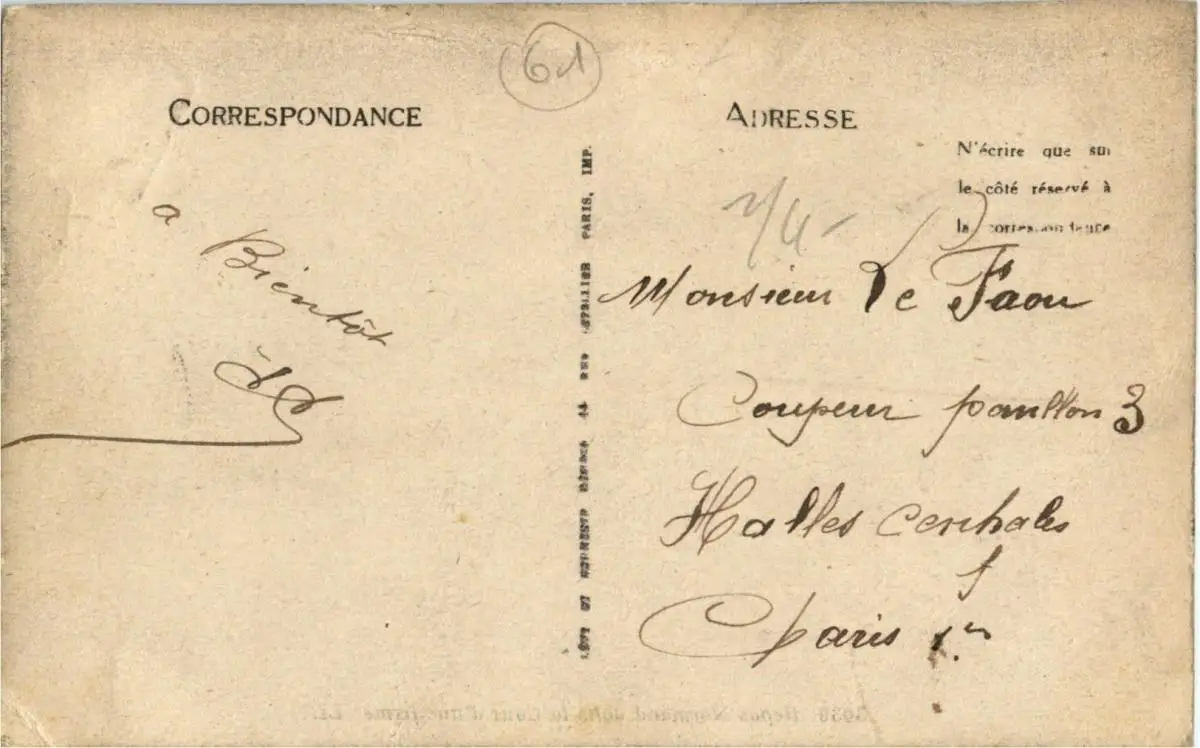 61
CORRESPONDANCE
a
Bientôt
ADRESSE
N'écrire que sur
le côté réservé à
la correspondance
Monsieur Le Faou
Coupeur pavillon 3
Halles centrales
Paris 1er
LÉVY ET NEURDEIN RÉUNIS 44 RUE LETELLIER PARIS, IMP.
Repas Normand dans la Cour d'une ferme LL.